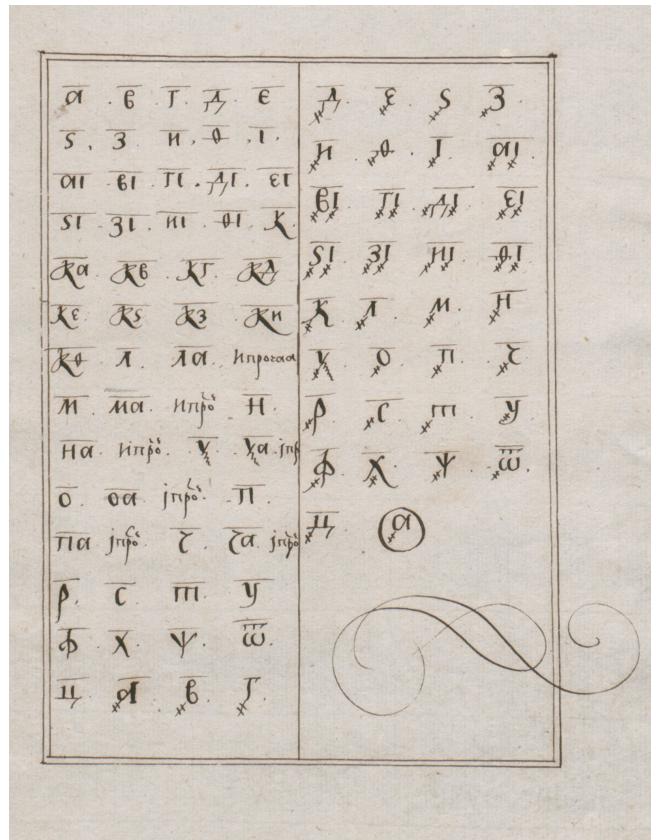 а҃ . в҃ . г҃ . д҃ . є҃
ѕ҃ . з҃ . и҃ . ѳ҃ . і҃ .
аі҃ . ві҃ . гі҃ . ді҃ . єі҃
ѕі҃ . зі҃ . иі҃ . ѳі҃ . к҃ .
ка҃ . кв҃ . кг҃ . кд҃ .
кє҃ . кѕ҃ . кз҃ . ки҃ .
кѳ҃ . л҃ . ла҃ . ипрочаа
м҃ . ма҃ . ипро̾ч . н҃ .
на҃ . ипро̾ч . ѵ҃ . ѵа҃ . јпр
о҃ . оа҃ . јпро̾ч . п҃ .
па҃ . јпро̾ч . ч҃ . ча҃ . јпро̾ч
р҃ . с҃ . т҃ . у҃
ф҃ . х҃ . ѱ҃ . ѿ҃ .
ц҃ . ҂а҃ . ҂в҃ . ҂г҃ .
҂д҃ . ҂є҃ . ҂ѕ҃ . ҂з҃ .
҂и҃ . ҂ѳ҃ . ҂і҃ . ҂а҂і҃ .
҂в҂і҃ . ҂г҂і҃ . ҂д҂і҃ . ҂є҂і҃
҂ѕ҂і҃ . ҂з҂і҃ . ҂и҂і҃ . ҂ѳ҂і҃ .
҂к҃ . ҂л҃ . ҂м҃ . ҂н҃
҂ѵ҃ . ҂о҃ . ҂п҃ . ҂ч҃ .
҂р҃ . ҂с҃ . ҂т҃ . ҂у҃
҂ф҃ . ҂х҃ . ҂ѱ҃ . ҂ѿ҃ .
҂ц҃ . ҂а҃